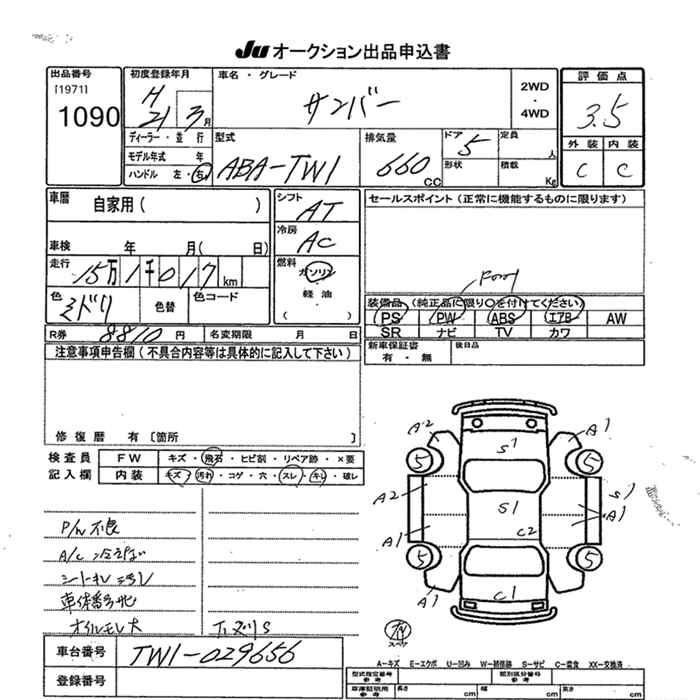 JU オークション出品申込書
出品番号
[1971]
1090
初度登録年月
H 21 3月
車名・グレード
サンバー
2WD
・
4WD
評価点
3.5
外装 内装
C C
ディーラー・並行
モデル年式 年
ハンドル 左・右
型式
ABA-TW1
排気量
660
CC
ドア 5
形状
定員
人
積載
Kg
車歴
自家用( )
シフト
AT
冷房
AC
セールスポイント(正常に機能するものに限ります)
車検 年 月( 日)
走行
15万1千017km
燃料
ガソリン
・
軽油
( )
色
ミドリ
色替
色コード
装備品(純正品に限り○を付けてください)
PS PW ABS エアB AW
SR ナビ TV カワ
R券 8810円
名変期限 月 日
新車保証書
有・無
後日品
注意事項申告欄(不具合内容等は具体的に記入して下さい)
修復歴 有〔箇所 〕
検査員
記入欄
FW キズ・飛石・ヒビ割・リペア跡・×要
内装 キズ・汚れ・コゲ・穴・スレ・キレ・破レ
A2 S1 A1
5 5
A2 S1 S1
A1 C2 A1
5 5
A1 C1
P/W不良
A/C冷えない
車体番号サビ
オイルモレ大
車台番号
TW1-029656
登録番号
A-キズ E-エクボ U-凹み W-補修跡 S-サビ C-腐食 XX-交換済
型式指定番号
参考
類別区分番号
参考
車庫証明用
参考
長さ cm
幅 cm
高さ cm